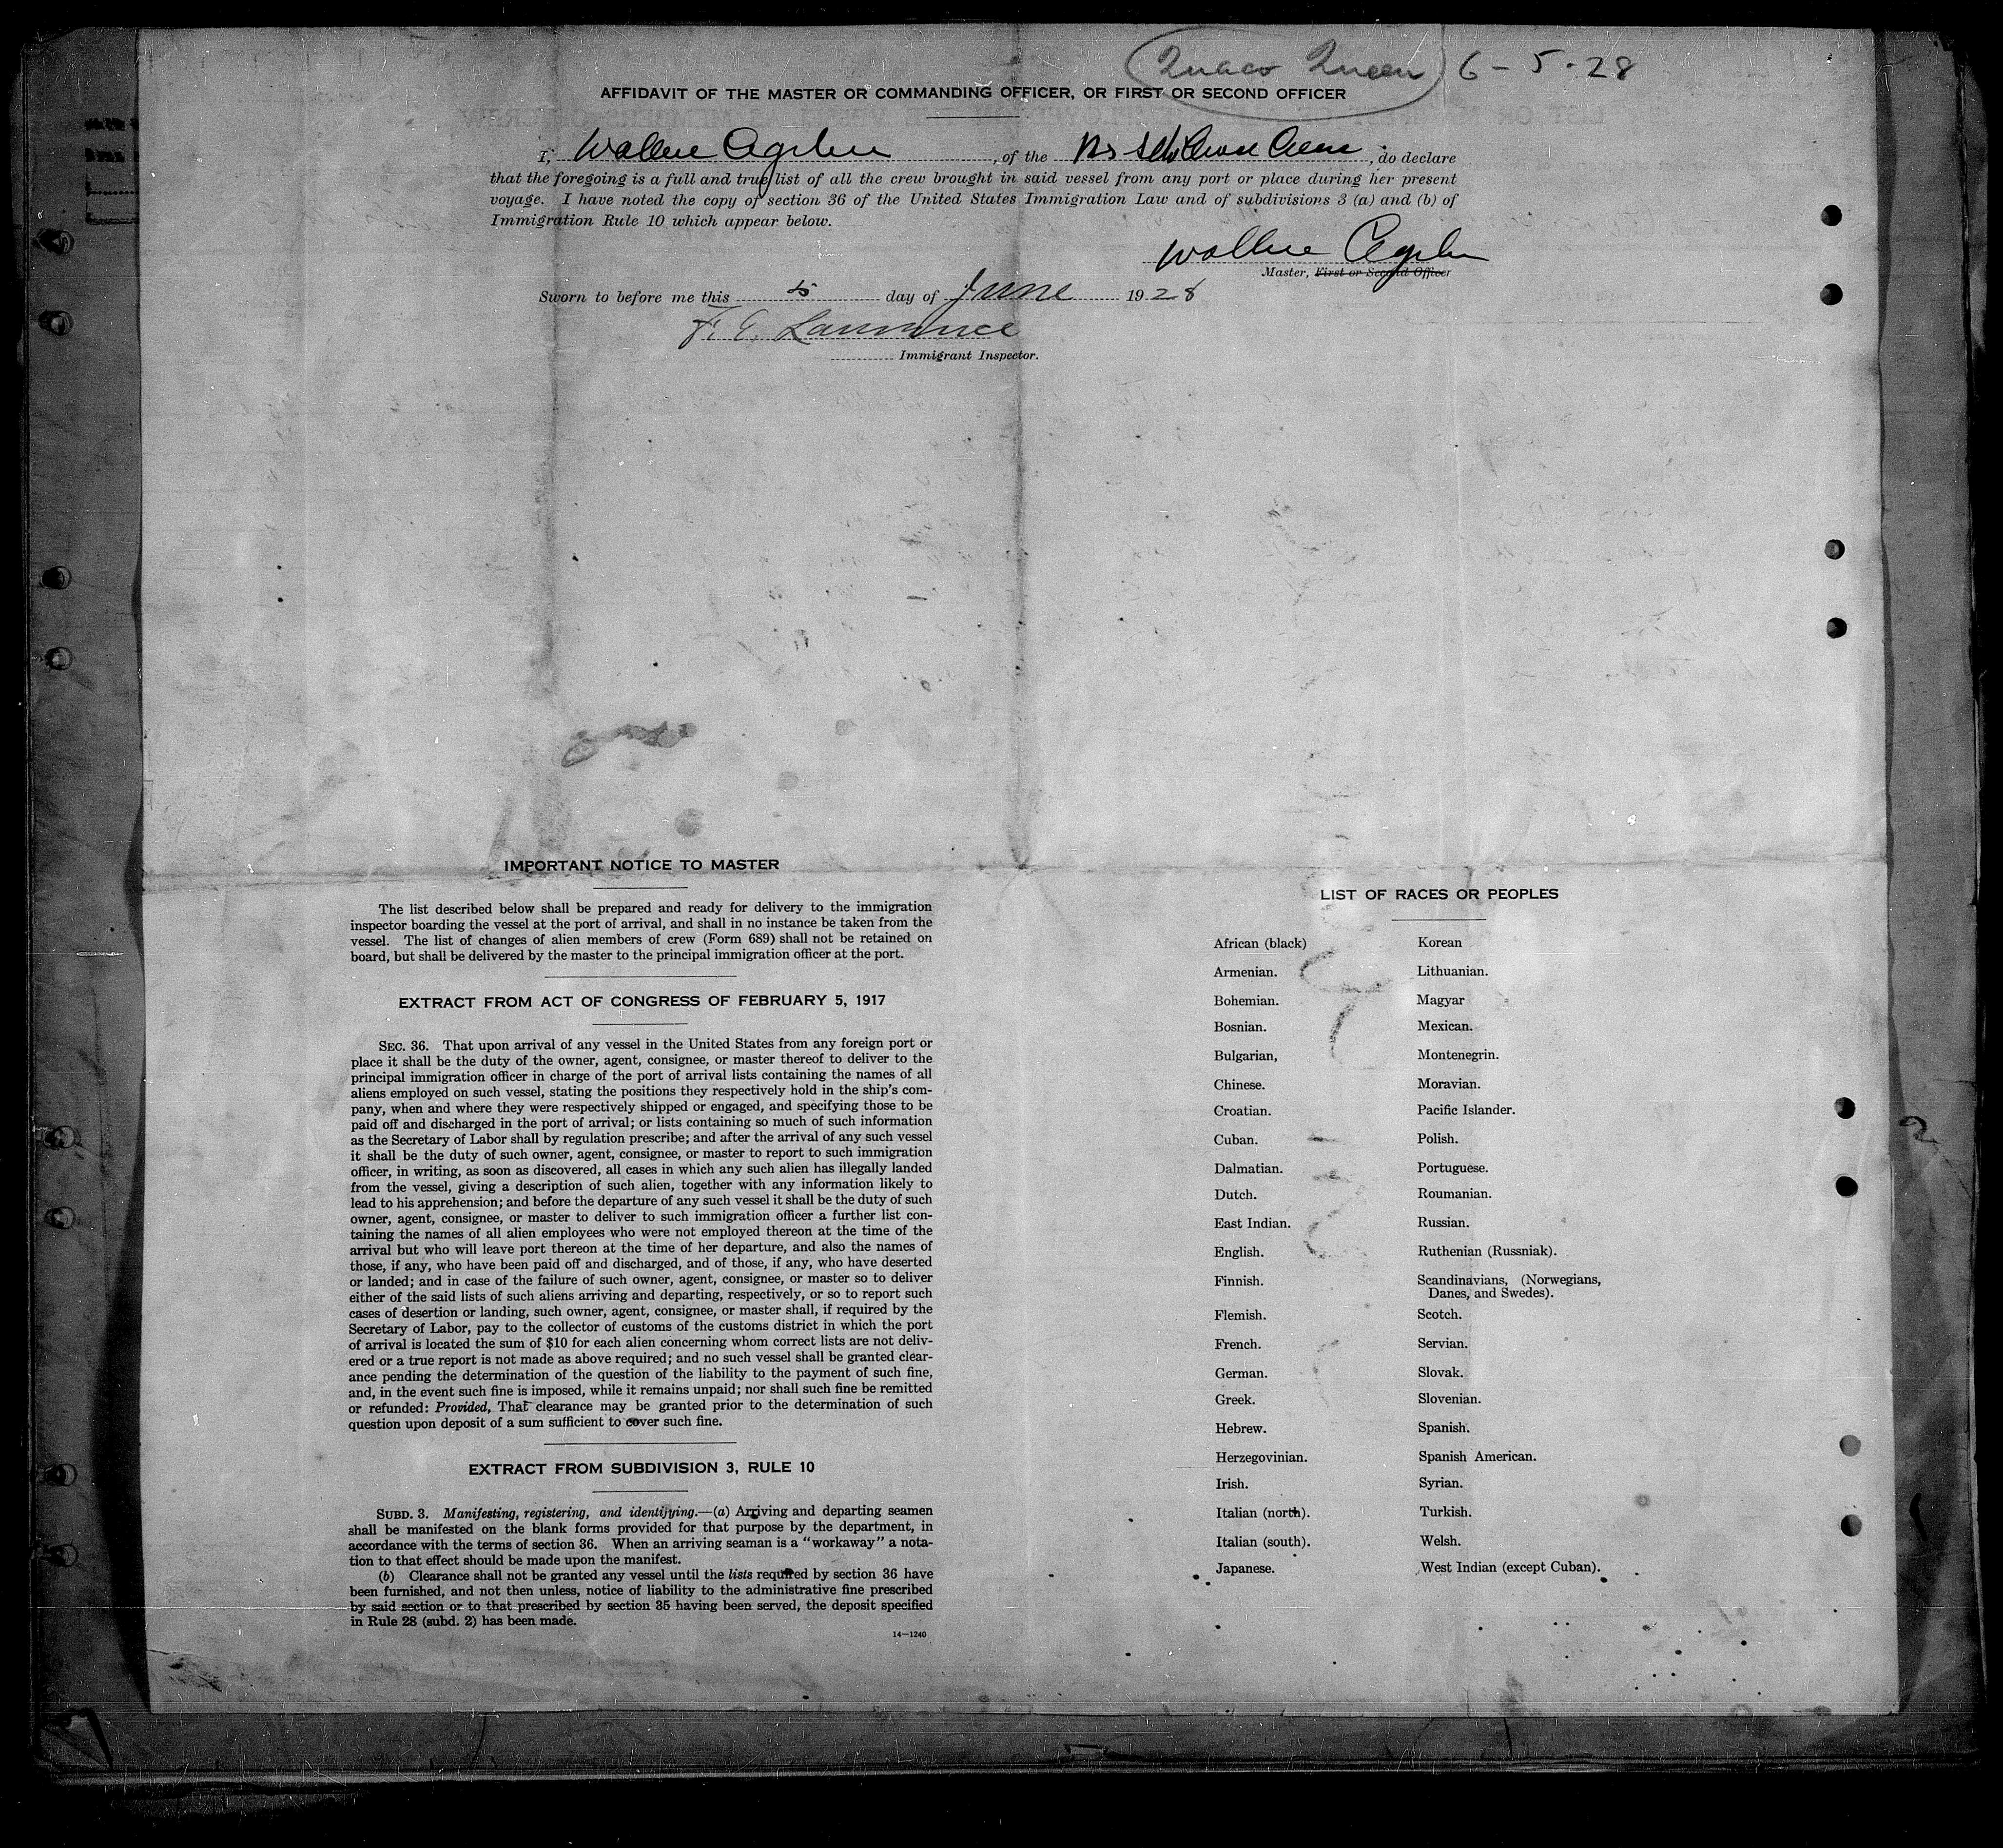 Quaco Queen 6-5-28
AFFIDAVIT OF THE MASTER OR COMMANDING OFFICER, OR FIRST OR SECOND OFFICER
I, Wallace Ogden, of the Br Sch Quaco Queen, do declare
that the foregoing is a full and true list of all the crew brought in said vessel from any port or place during her present
voyage. I have noted the copy of section 36 of the United States Immigration Law and of subdivisions 3 (a) and (b) of
Immigration Rule 10 which appear below.
Master, First or Second Officer
Sworn to before me this 5 day of June 1928
F. E. Lawrence
Immigrant Inspector.
IMPORTANT NOTICE TO MASTER
The list described below shall be prepared and ready for delivery to the immigration
inspector boarding the vessel at the port of arrival, and shall in no instance be taken from the
vessel. The list of changes of alien members of crew (Form 689) shall not be retained on
board, but shall be delivered by the master to the principal immigration officer at the port.
EXTRACT FROM ACT OF CONGRESS OF FEBRUARY 5, 1917
SEC. 36. That upon arrival of any vessel in the United States from any foreign port or
place it shall be the duty of the owner, agent, consignee, or master thereof to deliver to the
principal immigration officer in charge of the port of arrival lists containing the names of all
aliens employed on such vessel, stating the positions they respectively hold in the ship's com-
pany, when and where they were respectively shipped or engaged, and specifying those to be
paid off and discharged in the port of arrival; or lists containing so much of such information
as the Secretary of Labor shall by regulation prescribe; and after the arrival of any such vessel
it shall be the duty of such owner, agent, consignee, or master to report to such immigration
officer, in writing, as soon as discovered, all cases in which any such alien has illegally landed
from the vessel, giving a description of such alien, together with any information likely to
lead to his apprehension; and before the departure of any such vessel it shall be the duty of such
owner, agent, consignee, or master to deliver to such immigration officer a further list con-
taining the names of all alien employees who were not employed thereon at the time of the
arrival but who will leave port thereon at the time of her departure, and also the names of
those, if any, who have been paid off and discharged, and of those, if any, who have deserted
or landed; and in case of the failure of such owner, agent, consignee, or master so to deliver
either of the said lists of such aliens arriving and departing, respectively, or so to report such
cases of desertion or landing, such owner, agent, consignee, or master shall, if required by the
Secretary of Labor, pay to the collector of customs of the customs district in which the port
of arrival is located the sum of $10 for each alien concerning whom correct lists are not deliv-
ered or a true report is not made as above required; and no such vessel shall be granted clear-
ance pending the determination of the question of the liability to the payment of such fine,
and, in the event such fine is imposed, while it remains unpaid; nor shall such fine be remitted
or refunded: Provided, That clearance may be granted prior to the determination of such
question upon deposit of a sum sufficient to cover such fine.
EXTRACT FROM SUBDIVISION 3, RULE 10
SUBD. 3. Manifesting, registering, and identifying.—(a) Arriving and departing seamen
shall be manifested on the blank forms provided for that purpose by the department, in
accordance with the terms of section 36. When an arriving seaman is a "workaway" a nota-
tion to that effect should be made upon the manifest.
(b) Clearance shall not be granted any vessel until the lists required by section 36 have
been furnished, and not then unless, notice of liability to the administrative fine prescribed
by said section or to that prescribed by section 35 having been served, the deposit specified
in Rule 28 (subd. 2) has been made.
14—1240
LIST OF RACES OR PEOPLES
African (black)
Armenian.
Bohemian.
Bosnian.
Bulgarian,
Chinese.
Croatian.
Cuban.
Dalmatian.
Dutch.
East Indian.
English.
Finnish.
Flemish.
French.
German.
Greek.
Hebrew.
Herzegovinian.
Irish.
Italian (north).
Italian (south).
Japanese.
Korean
Lithuanian.
Magyar
Mexican.
Montenegrin.
Moravian.
Pacific Islander.
Polish.
Portuguese.
Roumanian.
Russian.
Ruthenian (Russniak).
Scandinavians, (Norwegians,
Danes, and Swedes).
Scotch.
Servian.
Slovak.
Slovenian.
Spanish.
Spanish American.
Syrian.
Turkish.
Welsh.
West Indian (except Cuban).